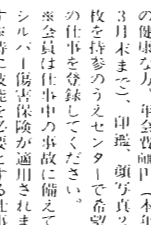 の健康な方。年会費円(本年
3月末まで)、印鑑、顔写真2
枚を持参のうえセンターで希望
の仕事を登録してください。
※会員は仕事中の事故に備えて
シルバー傷害保険が適用されま